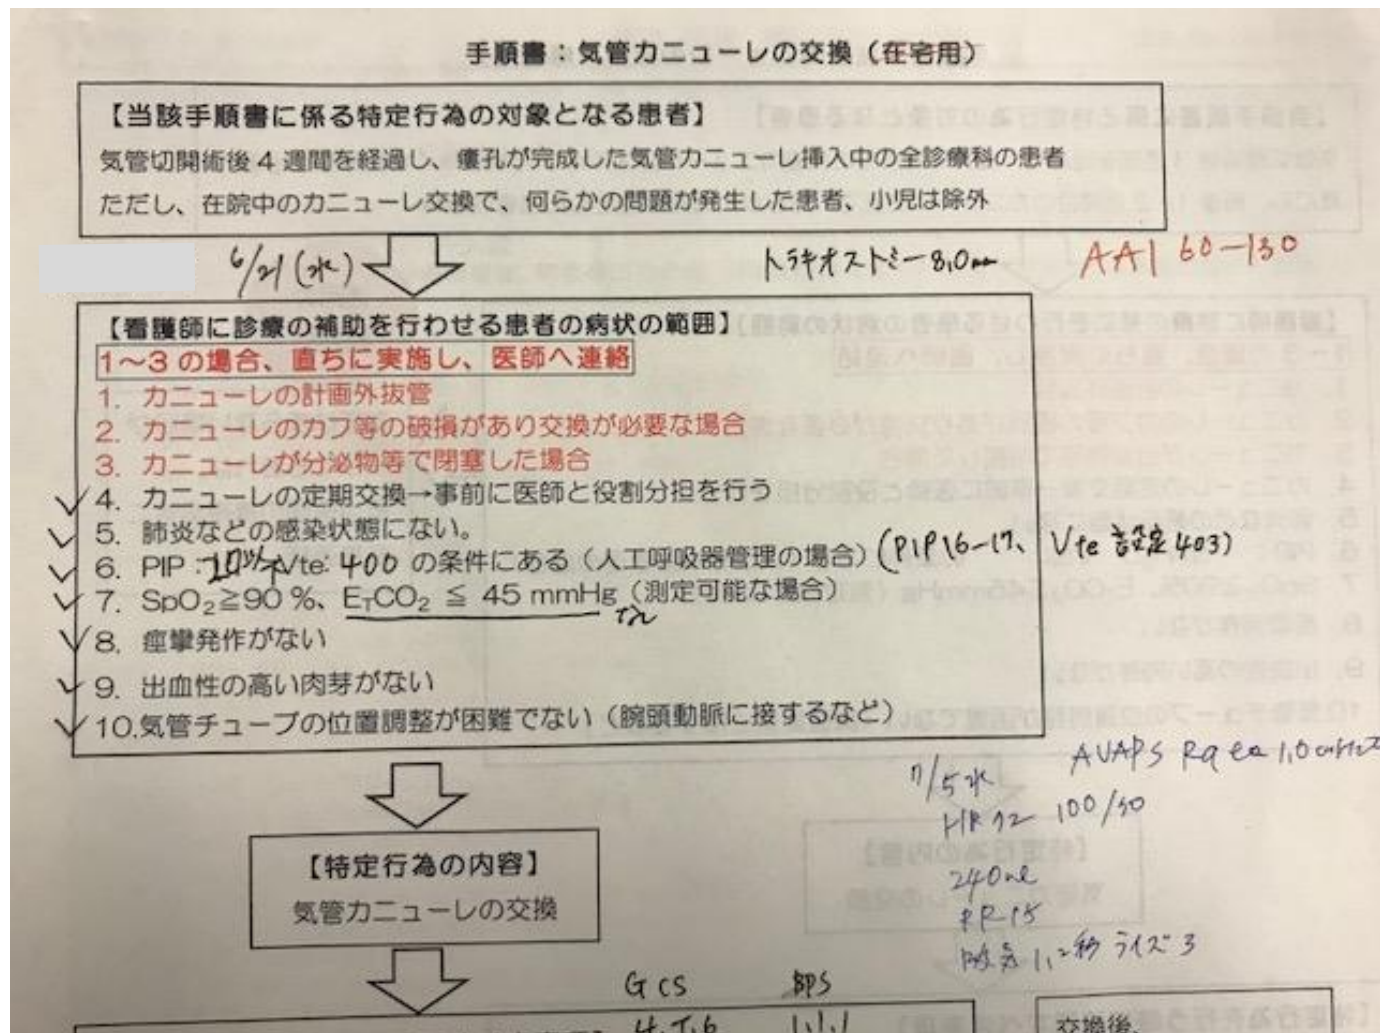 手順書：気管カニューレの交換（在宅用）
【当該手順書に係る特定行為の対象となる患者】
気管切開術後 4 週間を経過し、瘻孔が完成した気管カニューレ挿入中の全診療科の患者
ただし、在院中のカニューレ交換で、何らかの問題が発生した患者、小児は除外
6/21(水)
トラキオストミー 8.0mm
AAI 60-130
【看護師に診療の補助を行わせる患者の病状の範囲】
1～3 の場合、直ちに実施し、医師へ連絡
1. カニューレの計画外抜管
2. カニューレのカフ等の破損があり交換が必要な場合
3. カニューレが分泌物等で閉塞した場合
4. カニューレの定期交換→事前に医師と役割分担を行う
5. 肺炎などの感染状態にない。
6. PIP： Vte：400 の条件にある（人工呼吸器管理の場合）(PIP16-17、Vte 設定403)
7. SpO₂≧90 %、ETCO₂ ≦ 45 mmHg（測定可能な場合）
8. 痙攣発作がない
9. 出血性の高い肉芽がない
10.気管チューブの位置調整が困難でない（腕頭動脈に接するなど）
AVAPS
7/5 水
HR 72 100/50
【特定行為の内容】
気管カニューレの交換
240ml
RR 15
吸気 1.2秒 ライズ 3
GCS BPS
1.1.1
交換後、